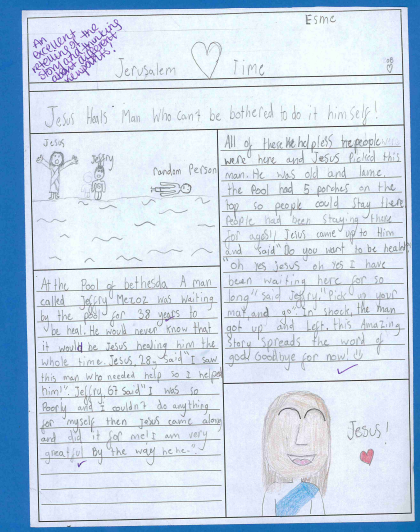 Esme
An
excellent
retelling of the
story and thinking
about different
viewpoints!
Jerusalem Time
Jesus Heals Man Who can't be bothered to do it himself!
Jesus
Jeffry
random Person
At the Pool of bethesda A man
called Jeffry Meroz was waiting
by the pool for 38 years to
be heal. He would never know that
it would be Jesus healing him the
whole time. Jesus, 28, said "I saw
this man who needed help so I helped
him!". Jeffry, 67 said "I was so
Poorly and I couldn't do anything
for myself then Jesus came along
and did it for me! I am very
greatful By the way hehe."
All of these helpless people
were here and Jesus Picked this
man. He was old and lame.
the Pool had 5 porches on the
top so people could stay there
People had been staying there
for ages!! Jesus came up to Him
and said "Do you want to be healed
"oh yes jesus oh yes I have
been waiting here for so
long" said Jeffry. "Pick up your
mat and go". In shock, the man
got up and left. this Amazing
Story Spreads the word of
god! Goodbye for now!
Jesus!